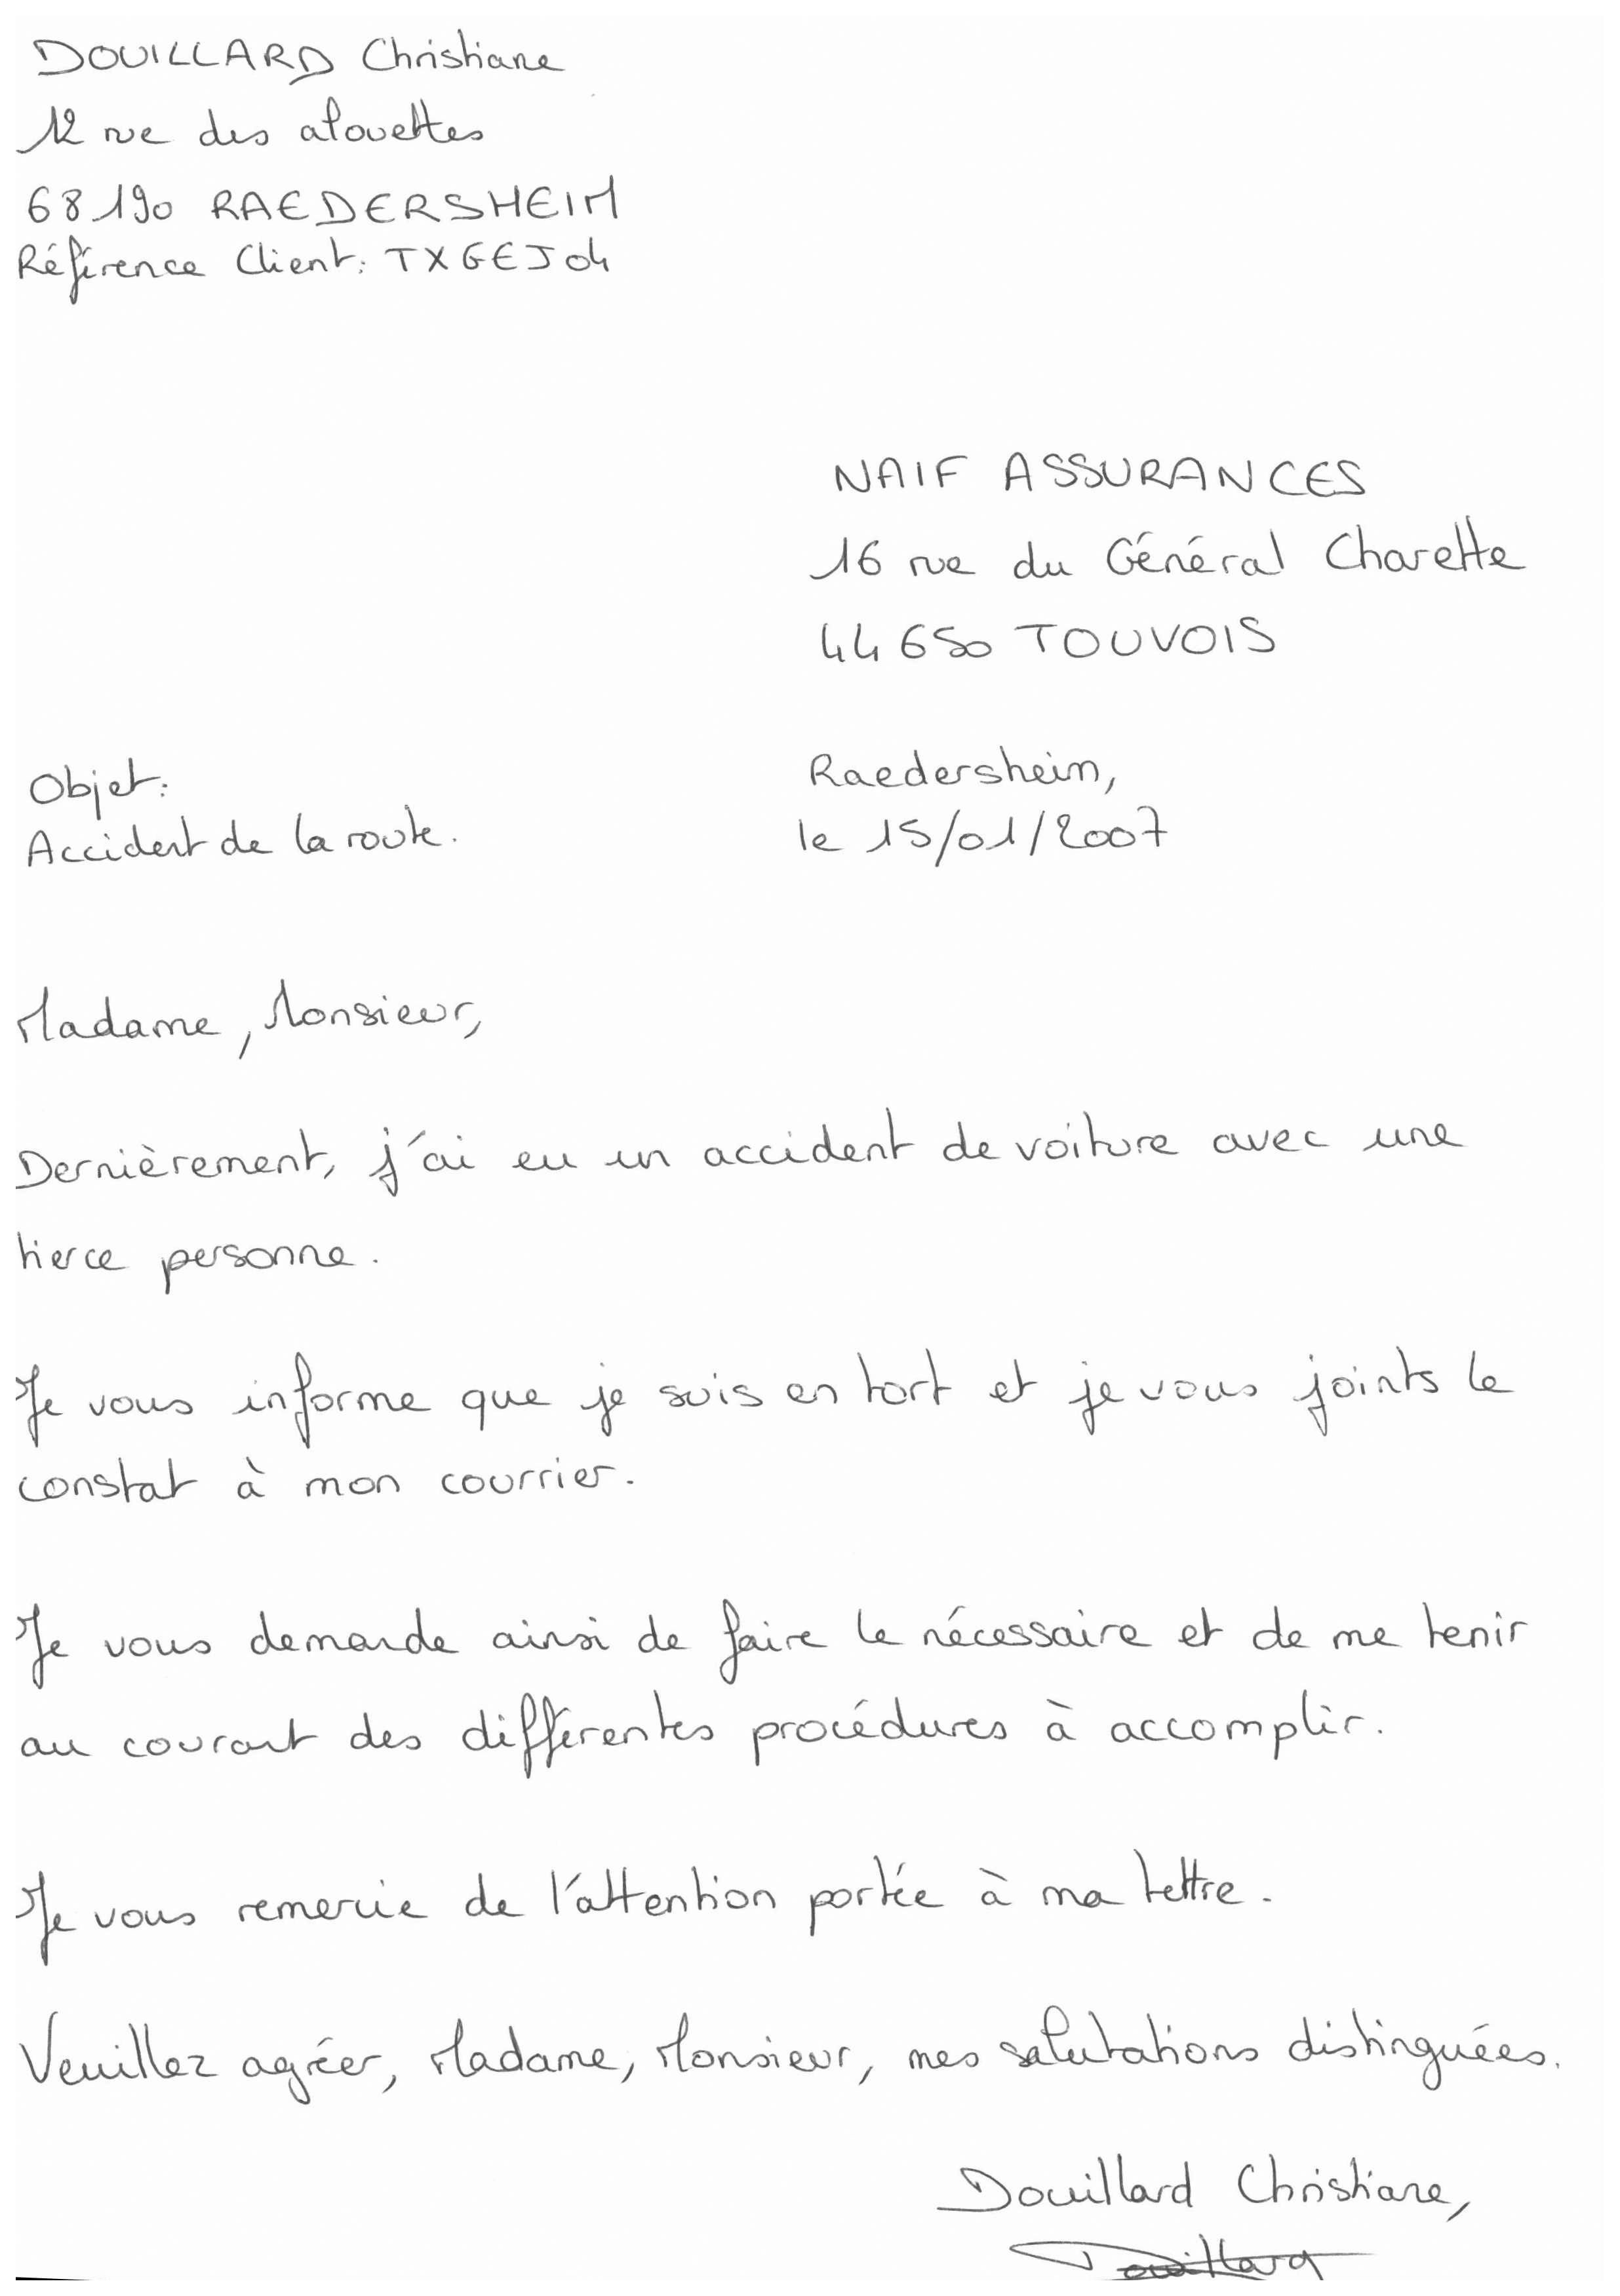 DOUILLARD Christiane
12 rue des alouettes
68190 RAEDERSHEIM
Référence Client: TXGEJ04
NAIF ASSURANCES
16 rue du Général Charette
44650 TOUVOIS
Objet:
Accident de la route.
Raedersheim,
le 15/01/2007
Madame, Monsieur,
Dernièrement, j'ai eu un accident de voiture avec une
tierce personne.
Je vous informe que je suis en tort et je vous joints le
constat à mon courrier.
Je vous demande ainsi de faire le nécessaire et de me tenir
au courant des différentes procédures à accomplir.
Je vous remercie de l'attention portée à ma lettre.
Veuillez agréer, Madame, Monsieur, mes salutations distinguées.
Douillard Christiane,
Douillard